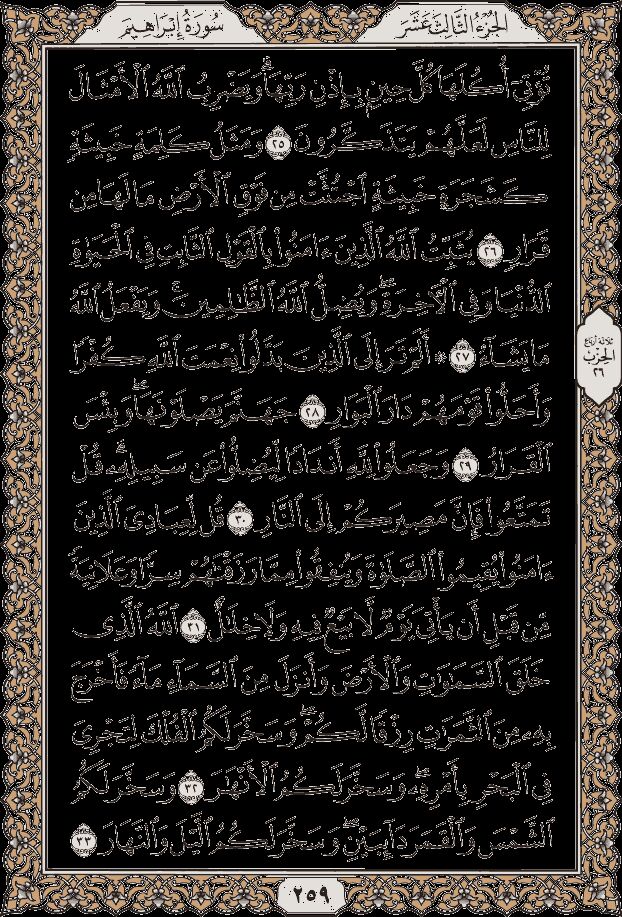 سُورَةُ إِبْرَاهِيمَ
الجُزْءُ الثَّالِثَ عَشَرَ
تُؤْتِىٓ أُكُلَهَا كُلَّ حِينٍۭ بِإِذْنِ رَبِّهَاۗ وَيَضْرِبُ ٱللَّهُ ٱلْأَمْثَالَ
لِلنَّاسِ لَعَلَّهُمْ يَتَذَكَّرُونَ ٢٥ وَمَثَلُ كَلِمَةٍ خَبِيثَةٍ
كَشَجَرَةٍ خَبِيثَةٍ ٱجْتُثَّتْ مِن فَوْقِ ٱلْأَرْضِ مَا لَهَا مِن
قَرَارٍ ٢٦ يُثَبِّتُ ٱللَّهُ ٱلَّذِينَ ءَامَنُوا۟ بِٱلْقَوْلِ ٱلثَّابِتِ فِى ٱلْحَيَوٰةِ
ٱلدُّنْيَا وَفِى ٱلْـَٔاخِرَةِۖ وَيُضِلُّ ٱللَّهُ ٱلظَّـٰلِمِينَۚ وَيَفْعَلُ ٱللَّهُ
مَا يَشَآءُ ٢٧ ۞ أَلَمْ تَرَ إِلَى ٱلَّذِينَ بَدَّلُوا۟ نِعْمَتَ ٱللَّهِ كُفْرًا
وَأَحَلُّوا۟ قَوْمَهُمْ دَارَ ٱلْبَوَارِ ٢٨ جَهَنَّمَ يَصْلَوْنَهَاۖ وَبِئْسَ
ٱلْقَرَارُ ٢٩ وَجَعَلُوا۟ لِلَّهِ أَندَادًا لِّيُضِلُّوا۟ عَن سَبِيلِهِۦۗ قُلْ
تَمَتَّعُوا۟ فَإِنَّ مَصِيرَكُمْ إِلَى ٱلنَّارِ ٣٠ قُل لِّعِبَادِىَ ٱلَّذِينَ
ءَامَنُوا۟ يُقِيمُوا۟ ٱلصَّلَوٰةَ وَيُنفِقُوا۟ مِمَّا رَزَقْنَـٰهُمْ سِرًّا وَعَلَانِيَةً
مِّن قَبْلِ أَن يَأْتِىَ يَوْمٌ لَّا بَيْعٌ فِيهِ وَلَا خِلَـٰلٌ ٣١ ٱللَّهُ ٱلَّذِى
خَلَقَ ٱلسَّمَـٰوَٰتِ وَٱلْأَرْضَ وَأَنزَلَ مِنَ ٱلسَّمَآءِ مَآءً فَأَخْرَجَ
بِهِۦ مِنَ ٱلثَّمَرَٰتِ رِزْقًا لَّكُمْۖ وَسَخَّرَ لَكُمُ ٱلْفُلْكَ لِتَجْرِىَ
فِى ٱلْبَحْرِ بِأَمْرِهِۦۖ وَسَخَّرَ لَكُمُ ٱلْأَنْهَـٰرَ ٣٢ وَسَخَّرَ لَكُمُ
ٱلشَّمْسَ وَٱلْقَمَرَ دَآئِبَيْنِۖ وَسَخَّرَ لَكُمُ ٱلَّيْلَ وَٱلنَّهَارَ ٣٣
ثلاثة أرباع
الحزب
٢٦
٢٥٩